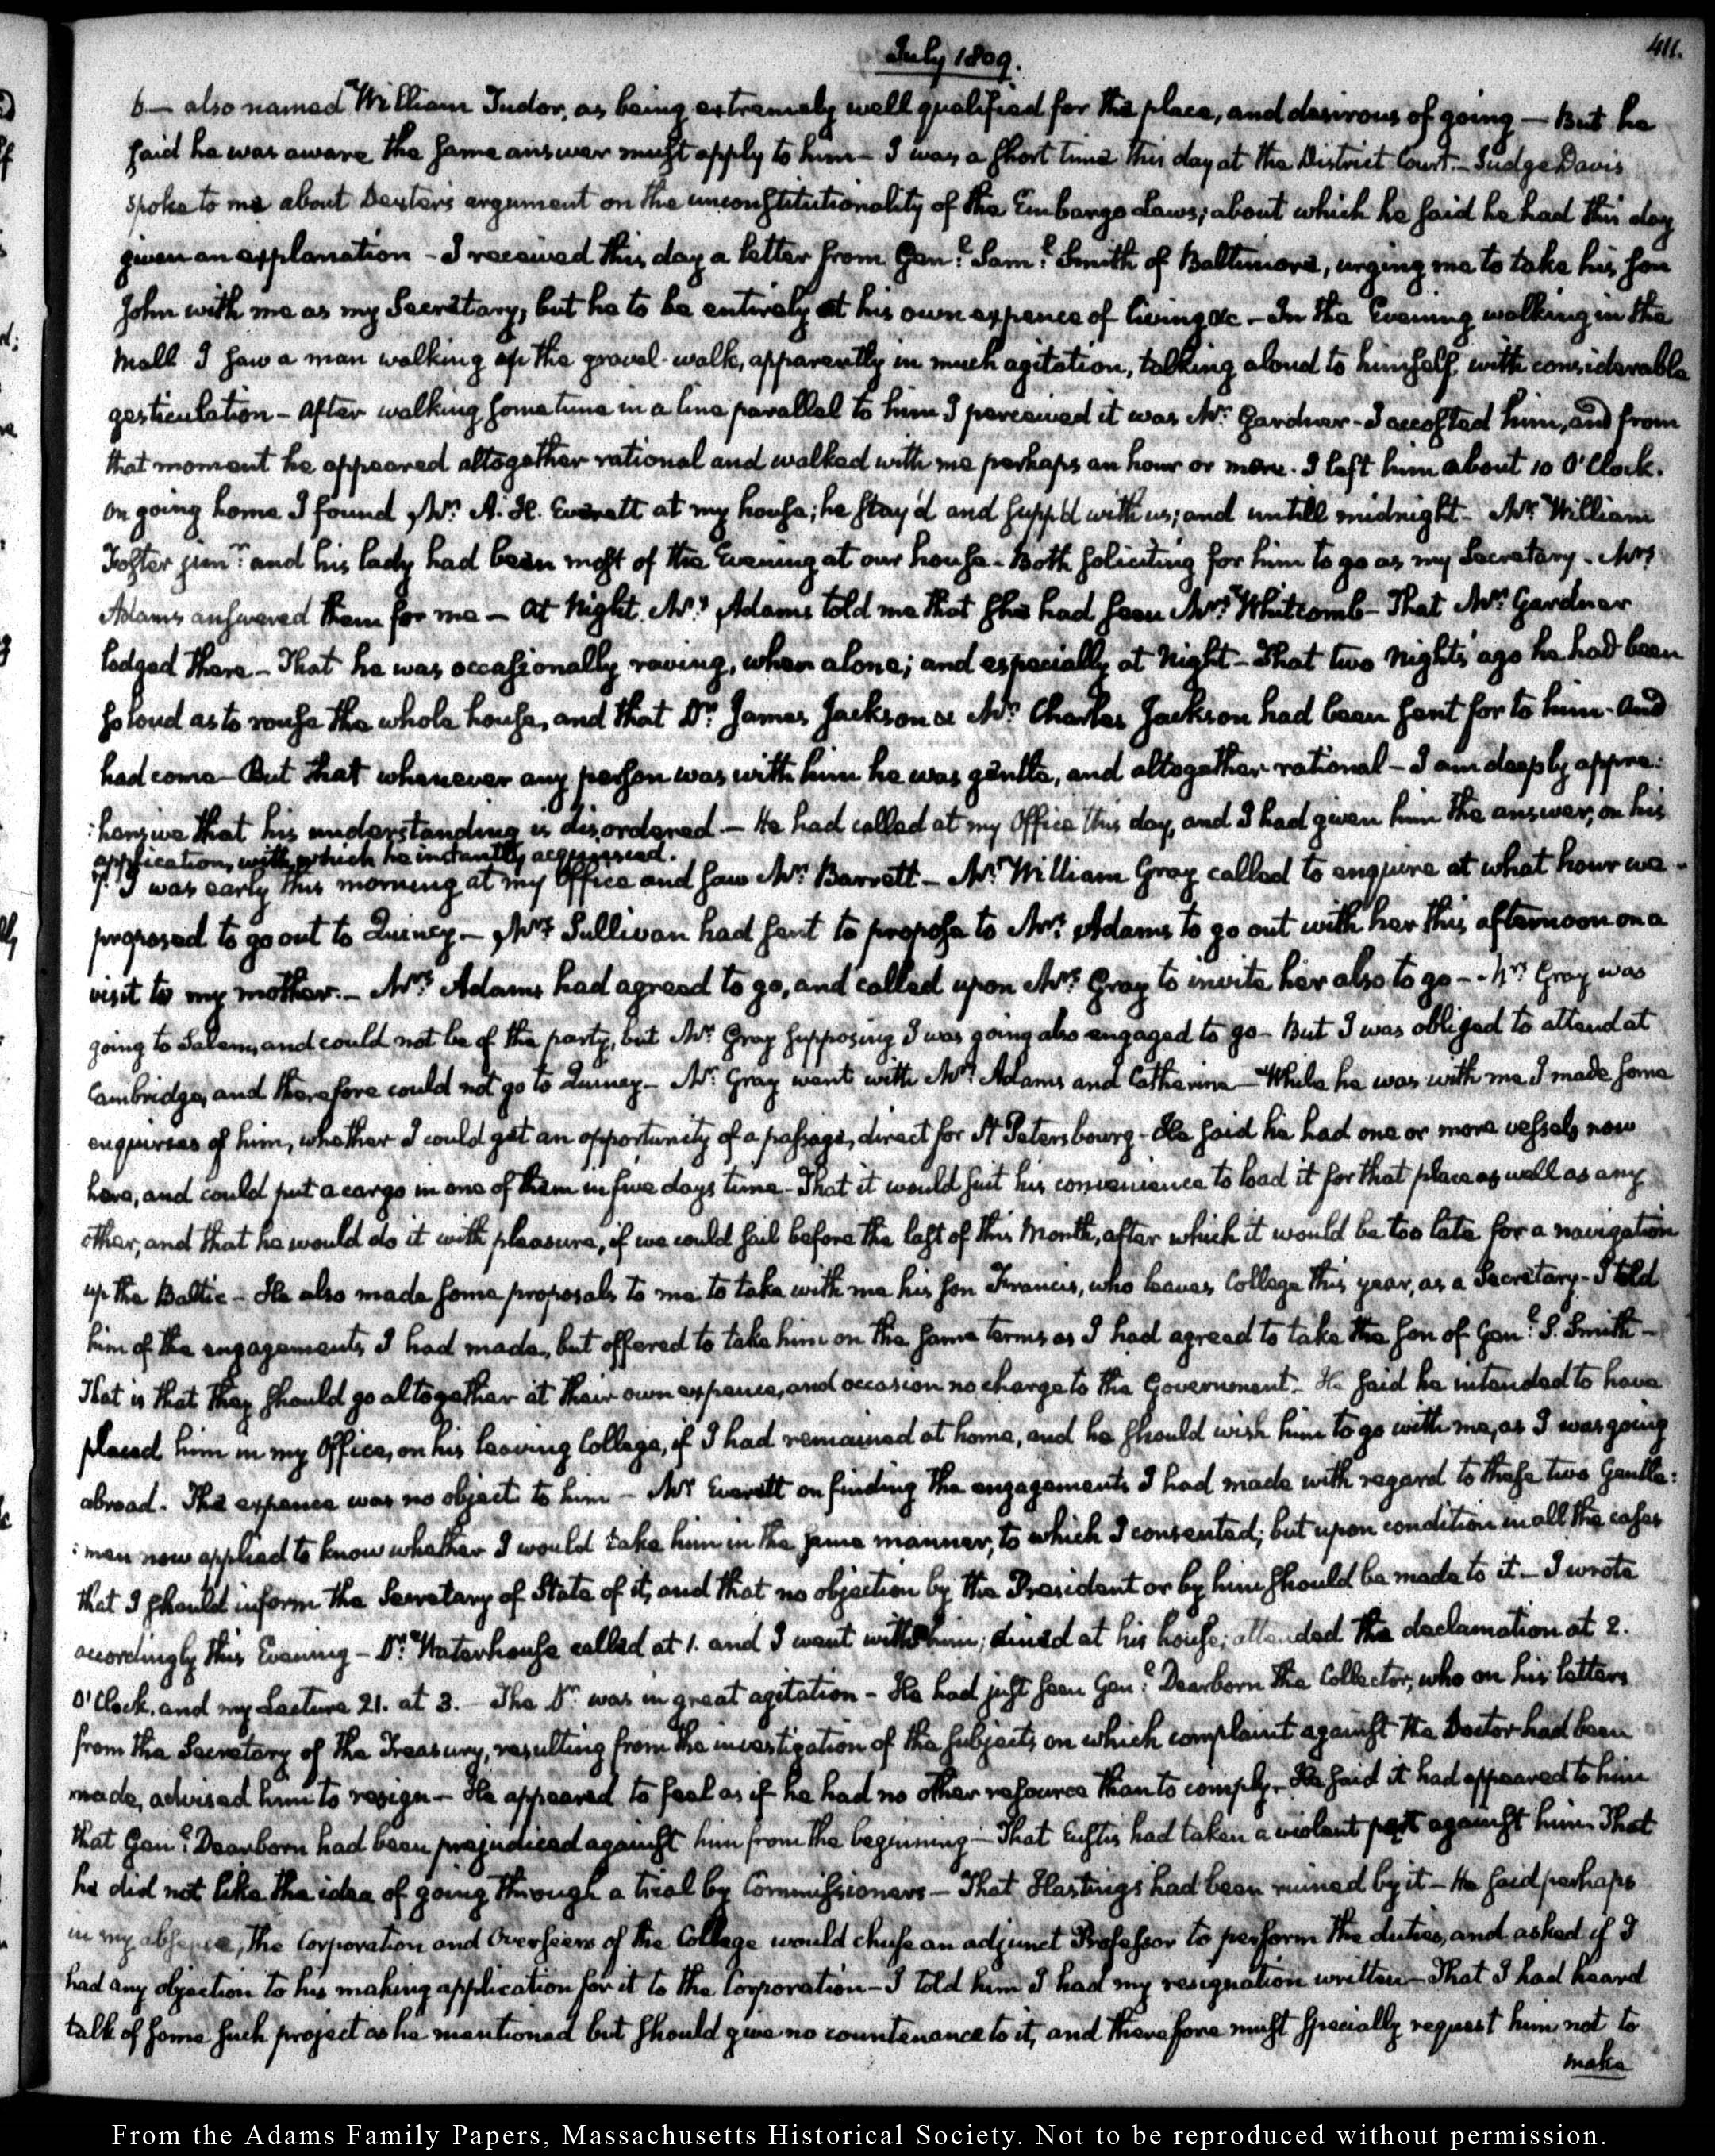 July 1809.
411.
6— also named William Tudor, as being extremely well qualified for the place, and desirous of going — But he
said he was aware the same answer must apply to him — I was a short time this day at the District Court — Judge Davis
spoke to me about Dexter's argument on the unconstitutionality of the Embargo Laws; about which he said he had this day
given an explanation — I received this day a letter from Genl. Saml. Smith of Baltimore, urging me to take his son
John with me as my Secretary, but he to be entirely at his own expence of living &c — In the Evening walking in the
Mall I saw a man walking up the gravel-walk, apparently in much agitation, talking aloud to himself, with considerable
gesticulation — After walking some time in a line parallel to him I perceived it was Mr. Gardner — I accosted him, and from
that moment he appeared altogether rational and walked with me perhaps an hour or more. I left him about 10 O'Clock.
On going home I found Mr. A. H. Everett at my house; he stay'd and supp'd with us; and untill midnight — Mr. William
Foster junr. and his lady had been most of the Evening at our house — Both soliciting for him to go as my Secretary — Mrs.
Adams answered them for me — At Night Mrs. Adams told me that she had seen Mrs. Whitcomb — That Mr. Gardner
lodged there — That he was occasionally raving, when alone; and especially at Night — That two Nights ago he had been
so loud as to rouse the whole house, and that Dr. James Jackson & Mr. Charles Jackson had been sent for to him — And
had come — But that whenever any person was with him he was gentle, and altogether rational — I am deeply appre:
:hensive that his understanding is disordered — He had called at my Office this day, and I had given him the answer, on his
application, with which he instantly acquiesced.
7. I was early this morning at my Office and saw Mr. Barrett — Mr. William Gray called to enquire at what hour we
proposed to go out to Quincy — Mrs. Sullivan had sent to propose to Mrs. Adams to go out with her this afternoon on a
visit to my mother — Mrs. Adams had agreed to go, and called upon Mrs. Gray to invite her also to go — Mrs. Gray was
going to Salem, and could not be of the party, but Mr. Gray supposing I was going also engaged to go — But I was obliged to attend at
Cambridge, and therefore could not go to Quincy — Mr. Gray went with Mrs. Adams and Catherine — While he was with me I made some
enquiries of him, whether I could get an opportunity of a passage, direct for St Petersbourg — He said he had one or more vessels now
here, and could put a cargo in one of them in five days time — That it would suit his convenience to load it for that place as well as any
other, and that he would do it with pleasure, if we could sail before the last of this Month, after which it would be too late for a navigation
up the Baltic — He also made some proposals to me to take with me his son Francis, who leaves College this year, as a Secretary — I told
him of the engagements I had made, but offered to take him on the same terms as I had agreed to take the son of Genl. S. Smith —
That is that they should go altogether at their own expence, and occasion no charge to the Government — He said he intended to have
placed him in my Office, on his leaving College, if I had remained at home, and he should wish him to go with me, as I was going
abroad. The expence was no object to him — Mr. Everett on finding the engagements I had made with regard to these two Gentle:
:men now applied to know whether I would take him in the same manner, to which I consented; but upon condition in all the cases
that I should inform the Secretary of State of it, and that no objection by the President or by him should be made to it — I wrote
accordingly this Evening — Dr. Waterhouse called at 1. and I went with him; dined at his house; attended the declamation at 2.
O'Clock, and my Lecture 21. at 3. — The Dr. was in great agitation — He had just seen Genl. Dearborn the Collector, who on his letters
from the Secretary of the Treasury, resulting from the investigation of the subjects on which complaint against the Doctor had been
made, advised him to resign — He appeared to feel as if he had no other resource than to comply — He said it had appeared to him
that Genl. Dearborn had been prejudiced against him from the beginning — That Eustis had taken a violent part against him. That
he did not like the idea of going through a trial by Commissioners — That Hastings had been ruined by it — He said perhaps
in my absence, the Corporation and Overseers of the College would chuse an adjunct Professor to perform the duties, and asked if I
had any objection to his making application for it to the Corporation — I told him I had my resignation written — That I had heard
talk of some such project as he mentioned but should give no countenance to it, and therefore must specially request him not to
make
From the Adams Family Papers, Massachusetts Historical Society. Not to be reproduced without permission.